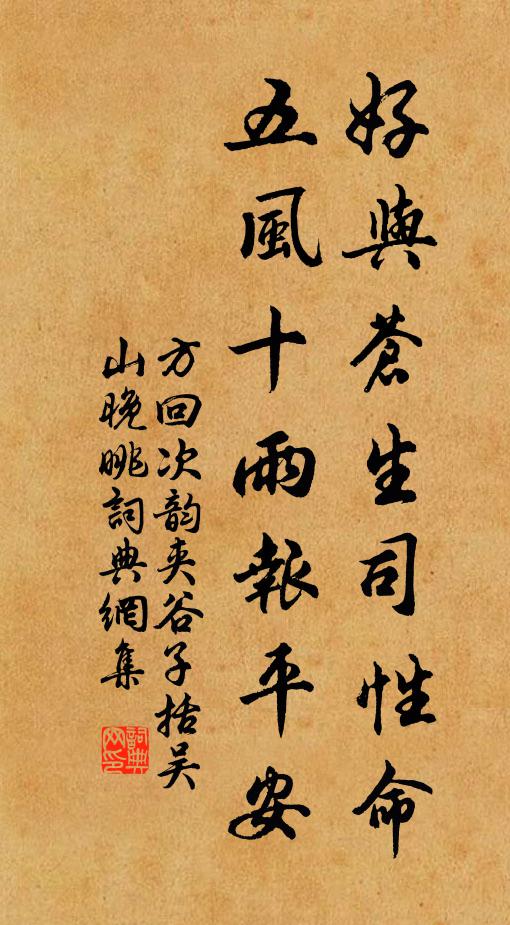 好與蒼生司性命
五風十雨報平安
方回次韵夹谷子括吴
山晚眺詞典網集
詞典
网印